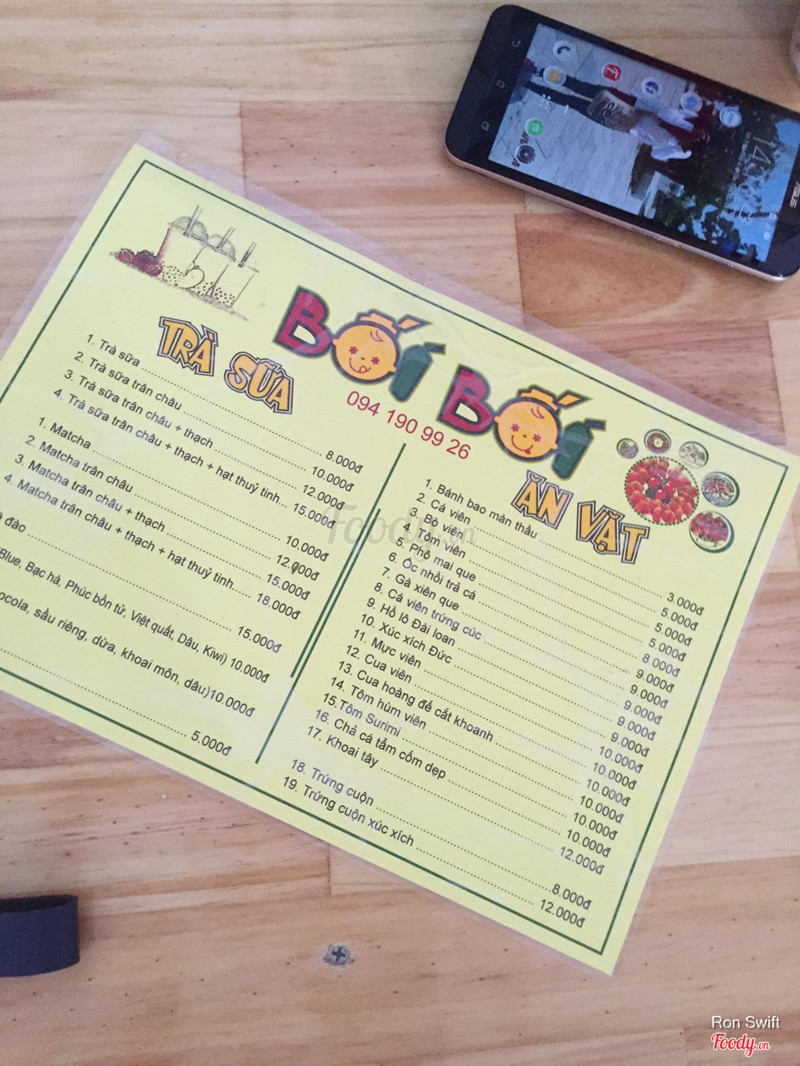 BỐI BỐI
094 190 99 26
TRÀ SỮA
1. Trà sữa 8.000đ
2. Trà sữa trân châu 10.000đ
3. Trà sữa trân châu + thạch 12.000đ
4. Trà sữa trân châu + thạch + hạt thuỷ tinh... 15.000đ
1. Matcha 10.000đ
2. Matcha trân châu 12.000đ
3. Matcha trân châu + thạch 15.000đ
4. Matcha trân châu + thạch + hạt thuỷ tinh..... 18.000đ
đào 15.000đ
Blue, Bạc hà, Phúc bồn tử, Việt quất, Dâu, Kiwi) 10.000đ
ocola, sầu riêng, dừa, khoai môn, dâu)10.000đ
5.000đ
ĂN VẶT
1. Bánh bao màn thầu 3.000đ
2. Cá viên 5.000đ
3. Bò viên 5.000đ
4. Tôm viên 5.000đ
5. Phô mai que 8.000đ
6. Ốc nhồi trả cá 9.000đ
7. Gà xiên que 9.000đ
8. Cá viên trứng cúc 9.000đ
9. Hồ lô Đài loan 9.000đ
10. Xúc xích Đức 10.000đ
11. Mực viên 10.000đ
12. Cua viên 10.000đ
13. Cua hoàng đế cắt khoanh 10.000đ
14. Tôm hùm viên 10.000đ
15.Tôm Surimi 10.000đ
16. Chả cá tẩm cốm dẹp 10.000đ
17. Khoai tây 12.000đ
18. Trứng cuộn 8.000đ
19. Trứng cuộn xúc xích 12.000đ
Foody.vn
ASUS
Ron Swift
Foody.vn